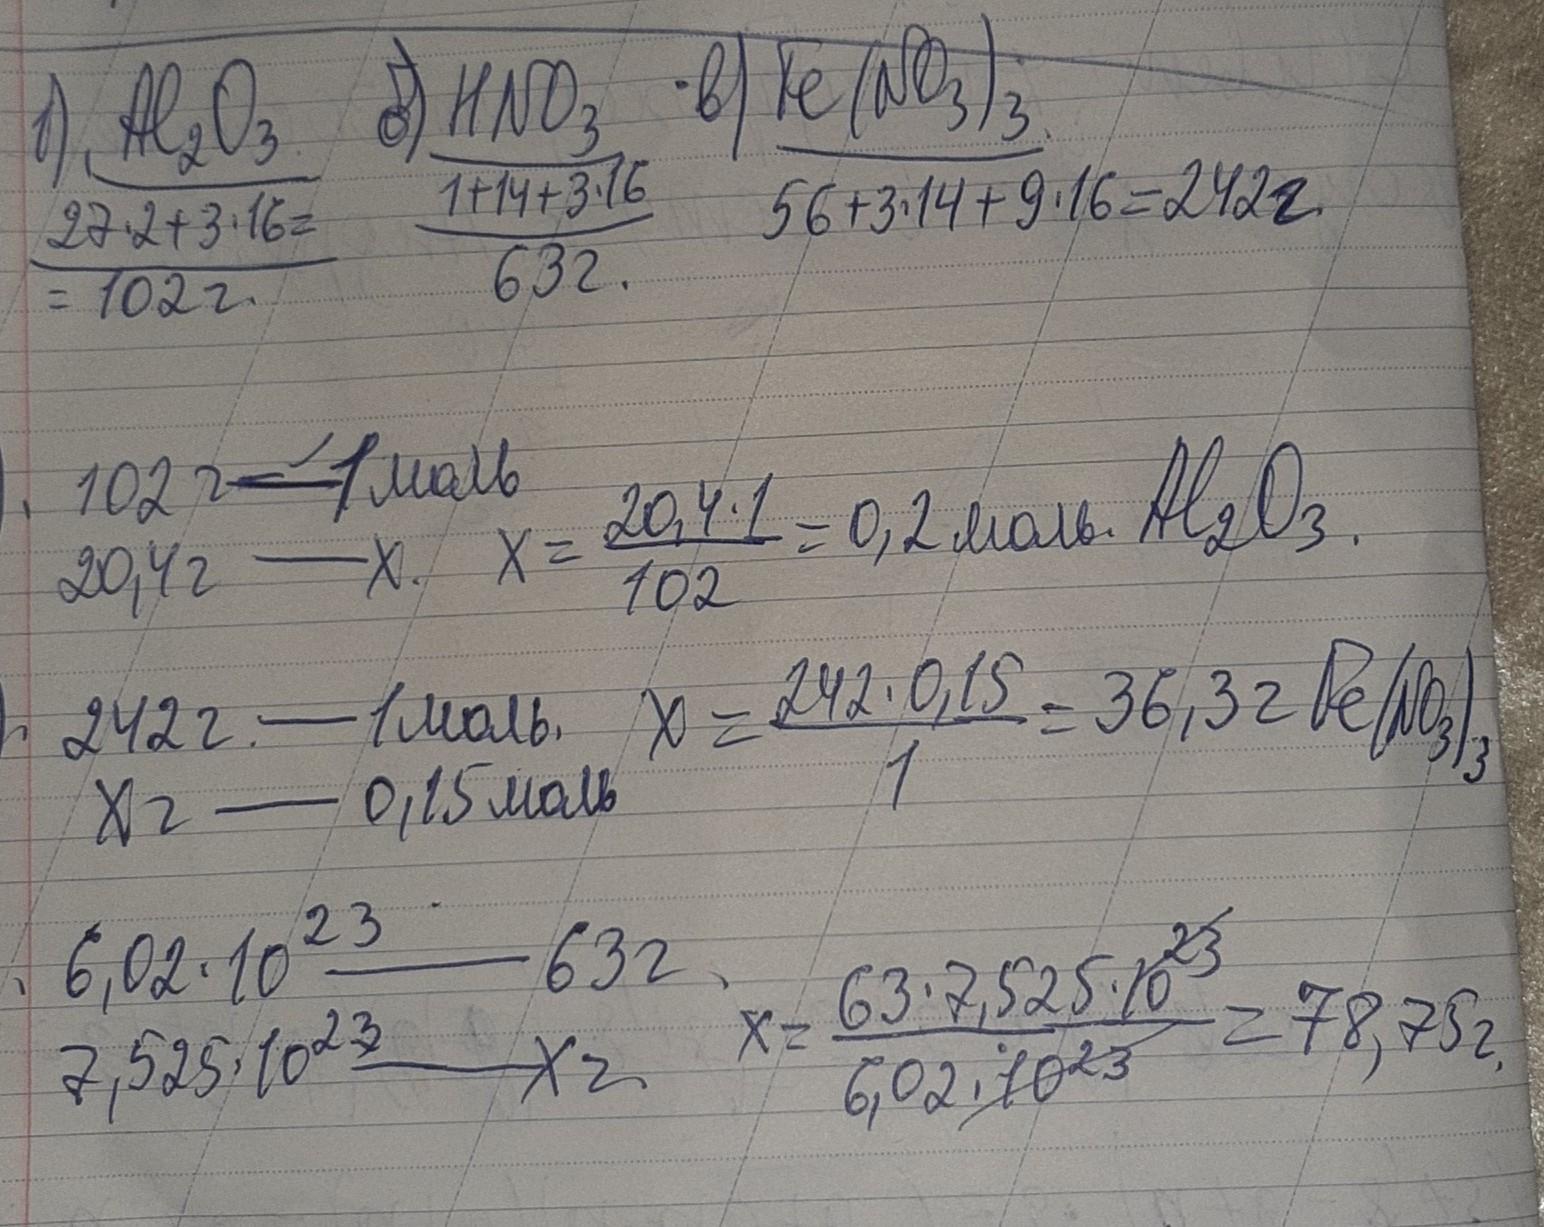 1) Al₂O₃ б) HNO₃ в) Fe(NO₃)₃.
27·2+3·16= 1+14+3·16 56+3·14+9·16=242г.
=102г. 63г.
102г — 1 моль
20,4г — X. X = 20,4·1/102 = 0,2 моль. Al₂O₃.
242г. — 1 моль. X = 242·0,15/1 = 36,3г Fe(NO₃)₃
Xг — 0,15 моль
6,02·10²³ — 63г.
7,525·10²³ — Xг. X = 63·7,525·10²³/6,02·10²³ = 78,75г.